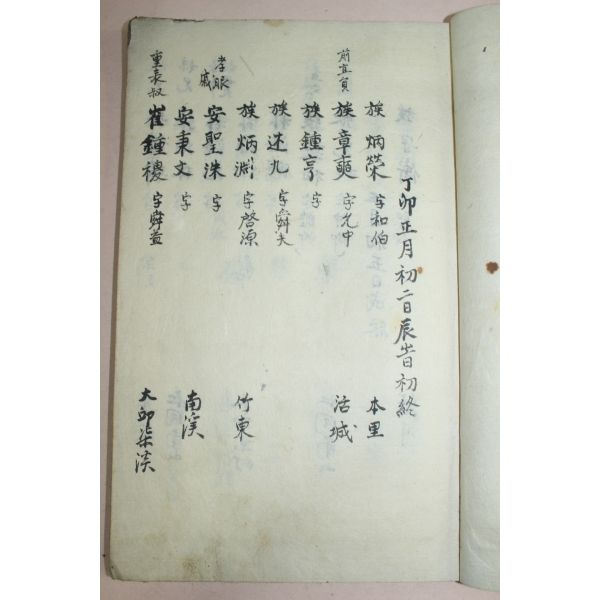 丁卯正月初二日辰時初終
族 炳榮 字和伯 本里
前直員 族 章奭 字允中 沽城
族 鍾亨 字
族 述九 字舜夫
族 炳淵 字啓源 竹東
孝服 戚 安聖洙 字
安秉文 字 南溪
重表叔 崔鍾禝 字舜益 大邱柒溪